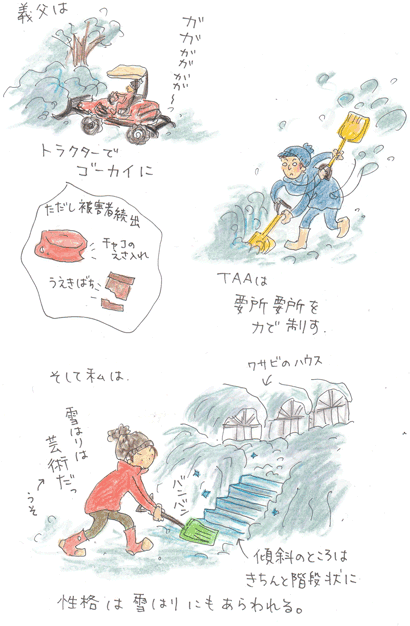 義父は
ガガガガガガ〜っ
トラクターで
ゴーカイに
ただし被害者続出
チャコの
えさ入れ
うえきばち
TAAは
要所要所を
力で制す.
そして私は.
ワサビのハウス
雪はりは
芸術だっ
うそ
バンバン
傾斜のところは
きちんと階段状に
性格は雪はりにもあらわれる。